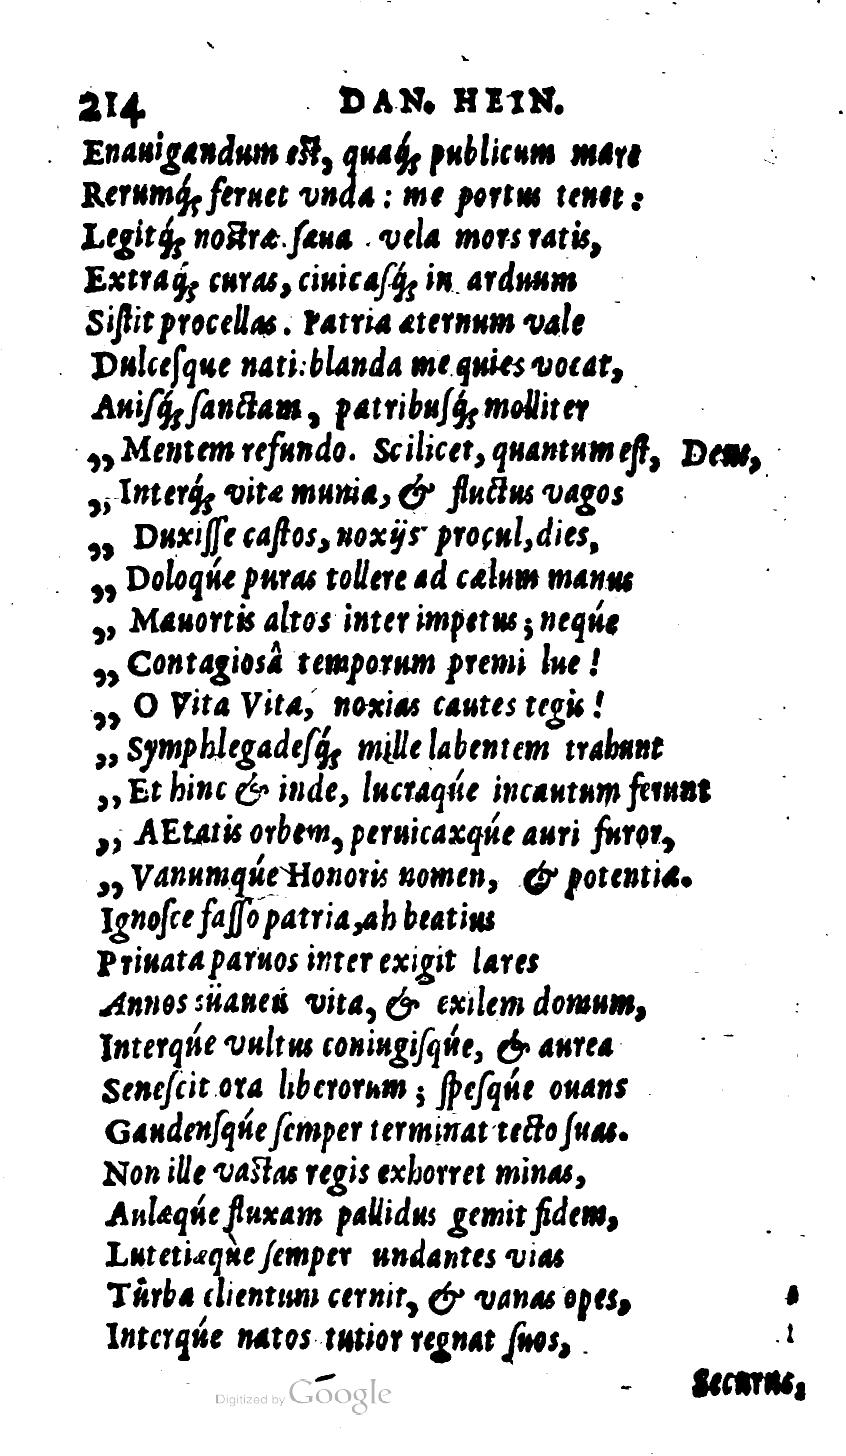 214 DAN. HEIN.
Enauigandum eſt, quaq́; publicum mare
Rerumq́; feruet vnda: me portus tenet:
Legitq́; noſtræ ſæua vela mors ratis,
Extraq́; curas, ciuicaſq́; in arduum
Siſtit procellas. Patria æternum vale
Dulceſque nati: blanda me quies vocat,
Auiſq́; ſanctam, patribuſq́; molliter
„ Mentem refundo. Scilicet, quantum eſt, Deus,
„ Interq́; vitæ munia, & fluctus vagos
„ Duxiſſe caſtos, noxijs procul, dies,
„ Doloqúe puras tollere ad cælum manus
„ Mauortis altos inter impetus; neqúe
„ Contagiosâ temporum premi lue!
„ O Vita Vita, noxias cautes tegis!
„ Symphlegadeſq́; mille labentem trahunt
„ Et hinc & inde, lucraqúe incautum ferunt
„ AEtatis orbem, peruicaxqúe auri furor,
„ Vanumqúe Honoris nomen, & potentiæ.
Ignoſce faſſo patria, ah beatius
Priuata paruos inter exigit lares
Annos süaueis vita, & exilem domum,
Interqúe vultus coniugiſqúe, & aurea
Seneſcit ora liberorum; ſpeſqúe ouans
Gaudenſqúe ſemper terminat tecto ſuas.
Non ille vaſtas regis exhorret minas,
Aulæqúe fluxam pallidus gemit fidem,
Lutetiæqùe ſemper undantes vias
Tûrba clientum cernit, & vanas opes,
Interqúe natos tutior regnat ſuos,
Securus,
Digitized by Google